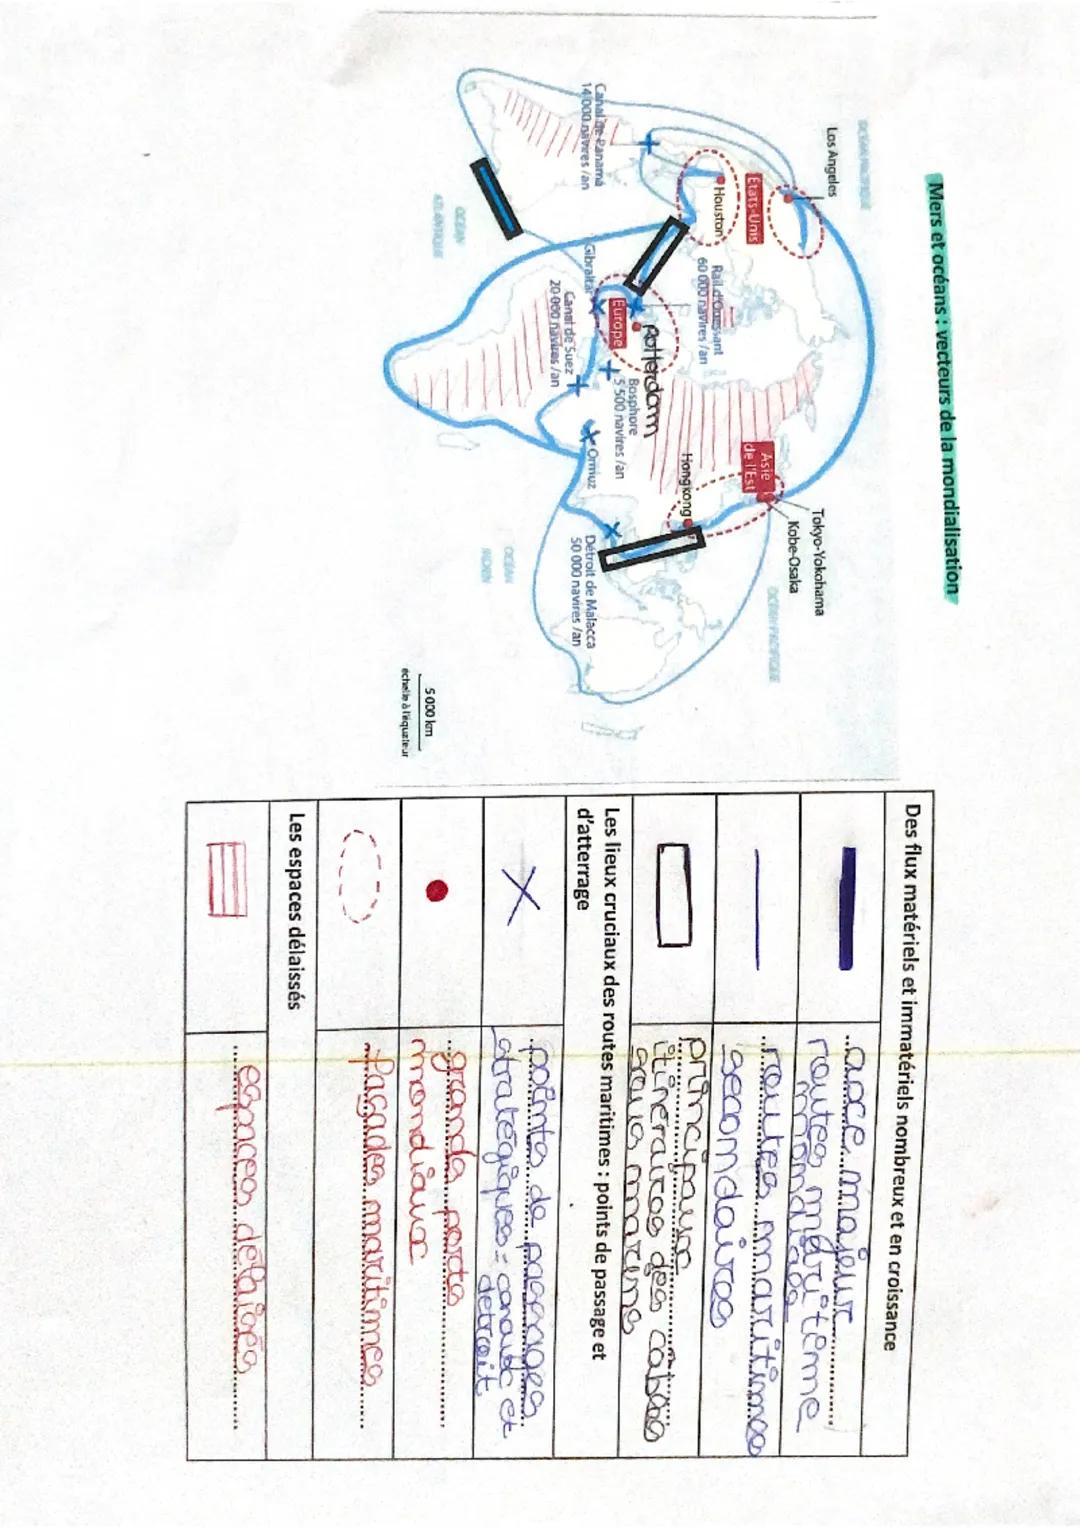 Mers et océans : vecteurs de la mondialisation
OCÉAN PACIFIQUE
Los Angeles
États-Unis
Houston
Canal de Panamá
14 000 navires /an
Rail d'Ouessant
60 000 navires /an
Rotterdam
Europe
Gibraltar
Bosphore
5 500 navires /an
Canal de Suez
20 000 navires /an
Ormuz
Asie
de l'Est
Hongkong
Tokyo-Yokohama
Kobe-Osaka
OCÉAN PACIFIQUE
Détroit de Malacca
50 000 navires /an
OCÉAN
ATLANTIQUE
OCÉAN
INDIEN
5 000 km
échelle à l'équateur
Des flux matériels et immatériels nombreux et en croissance
axe majeur
routes maritime
mondiales
routes maritimes
secondaires
principaux
itinéraires des cables
sous marins
Les lieux cruciaux des routes maritimes : points de passage et
d'atterrage
points de passages
stratégiques = canaux et
detroit
grands ports
mondiaux
façades maritimes
Les espaces délaissés
espaces délaisés